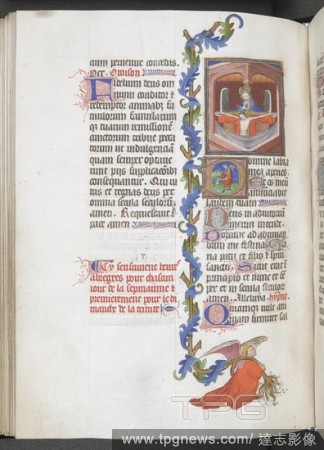 aum peruenire concedas.
Per. Oroison
Fidelium deus om
nium conditor et
redemptor animabus fa
mulorum famularum
que tuarum remissionem
cunctorum tribue pecca
torum ut indulgenciam
quam semper optaue
runt piis supplicacionibus
consequantur. Qui viuis
et regnas deus per
omnia secula seculorum
amen. Requiescant in
pace amen
Cy sensuiuent heures
abregies pour chascun
iour de la sepmaine et
premierement pour le di
manche de la trinite
Domine labia
mea aperies
Et os meum
annunciabit
laudem tuam
Deus in adiutorium
meum intende
Domine ad adiuuan
dum me festina Glo
ria patri et filio et spiritui
sancto. Sicut erat in
principio et nunc et sem
per et in secula seculorum
amen. Alleluya. hympne
Quamque uult
saluus
TPG
www.tpgnews.com / 達志影像